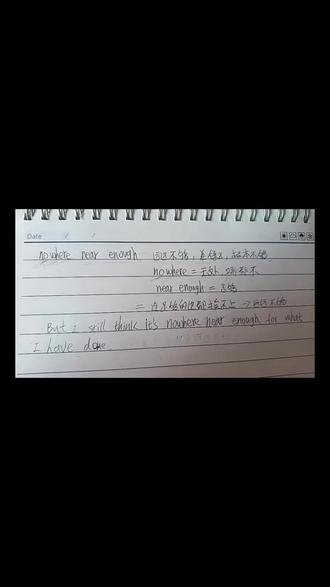 Date / /
nowhere near enough 远远不够, 差得远, 根本不够
nowhere = 无处, 哪都不
near enough = 足够
= 连足够的边都挨不上 → 远远不够
But I still think it's nowhere near enough for what
I have done